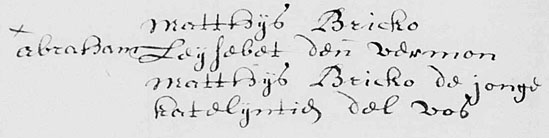 Matthijs Bricko
abraham Leijsebet den vermon
Matthijs Bricko de jonge
katelijntie del vos